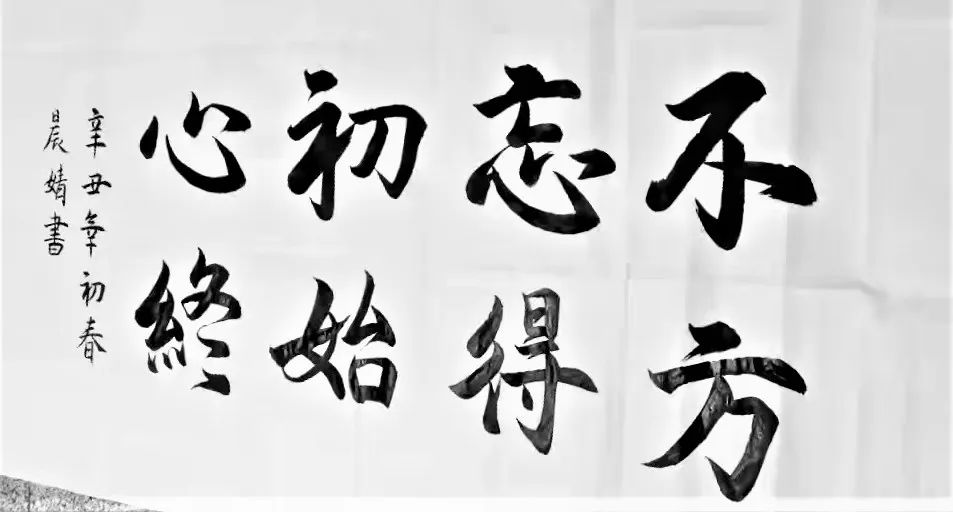 不忘初心
方得始終
辛丑年初春
晨婧書